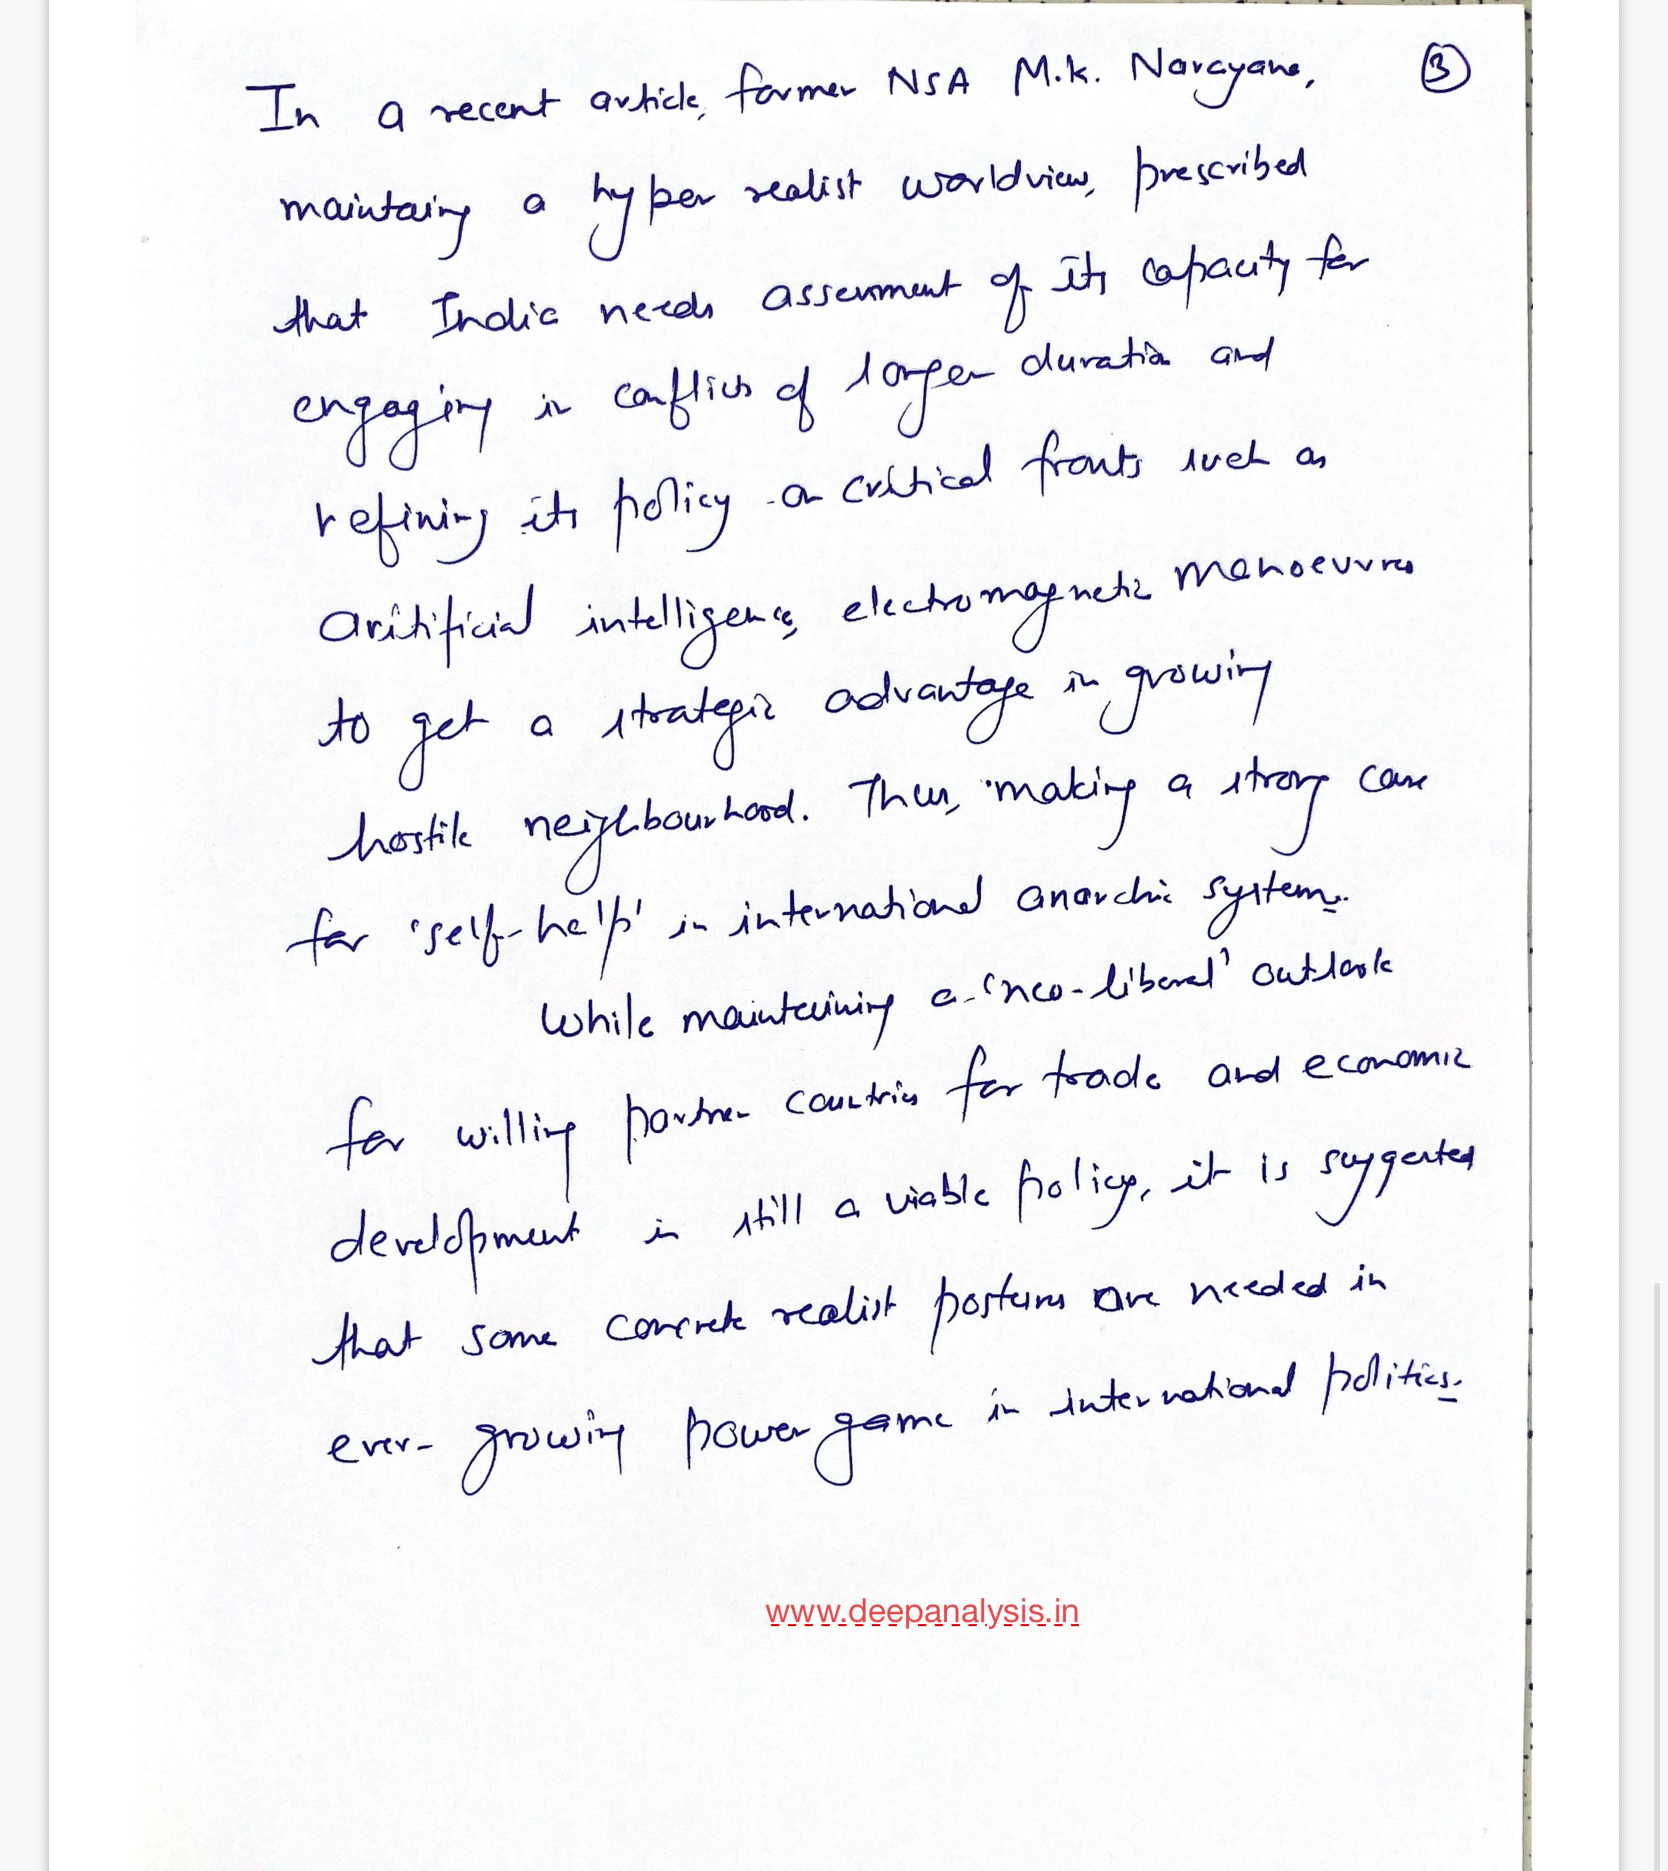 In a recent article, former NSA M.K. Narayana, ③
maintaing a hyper realist worldview, prescribed
that India needs assessment of its capacity for
engaging in conflicts of longer duration and
refining its policy on critical fronts such as
aritificial intelligence, electromagnetic manoeuvres
to get a strategic advantage in growing
hostile neighbourhood. Thus, making a strong case
for 'self-help' in international anarchic system.
While maintaining a 'neo-liberal' outlook
for willing partner countries for trade and economic
development is still a viable policy, it is suggested
that some concrete realist postures are needed in
ever-growing power game in international politics.
www.deepanalysis.in